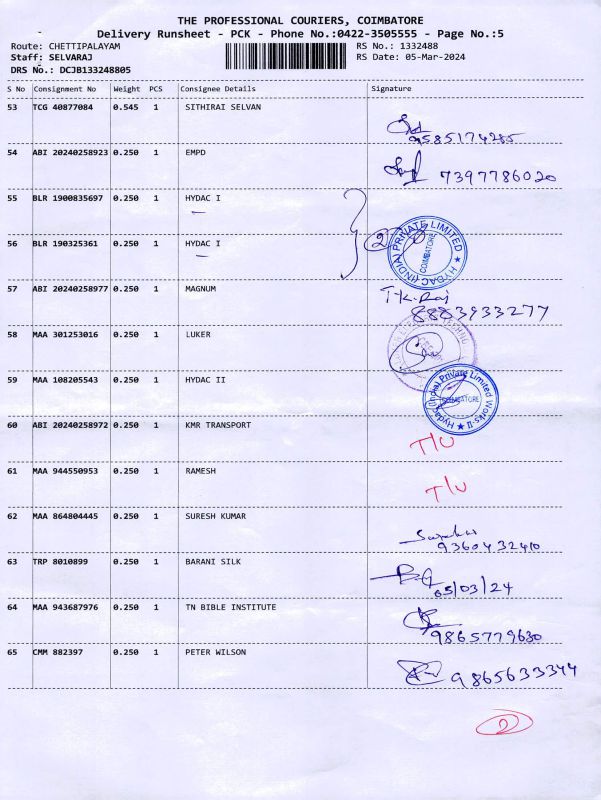 THE PROFESSIONAL COURIERS, COIMBATORE
Delivery Runsheet - PCK - Phone No.:0422-3505555 - Page No.:5
Route: CHETTIPALAYAM RS No.: 1332488
Staff: SELVARAJ RS Date: 05-Mar-2024
DRS No.: DCJB133248805
S No Consignment No Weight PCS Consignee Details Signature
53 TCG 40877084 0.545 1 SITHIRAI SELVAN
9585174285
54 ABI 20240258923 0.250 1 EMPD
7397786020
55 BLR 1900835697 0.250 1 HYDAC I
2
HYDAC (INDIA) PRIVATE LIMITED ★
COIMBATORE
56 BLR 190325361 0.250 1 HYDAC I
57 ABI 20240258977 0.250 1 MAGNUM T.K.Raj
8883933277
58 MAA 301253016 0.250 1 LUKER
59 MAA 108205543 0.250 1 HYDAC II
Hydac (India) Private Limited Works-II ★
COIMBATORE
60 ABI 20240258972 0.250 1 KMR TRANSPORT
T/U
61 MAA 944550953 0.250 1 RAMESH
T/U
62 MAA 864804445 0.250 1 SURESH KUMAR
9360432410
63 TRP 8010899 0.250 1 BARANI SILK
05/03/24
64 MAA 943687976 0.250 1 TN BIBLE INSTITUTE
9865779630
65 CMM 882397 0.250 1 PETER WILSON
9865633344
2